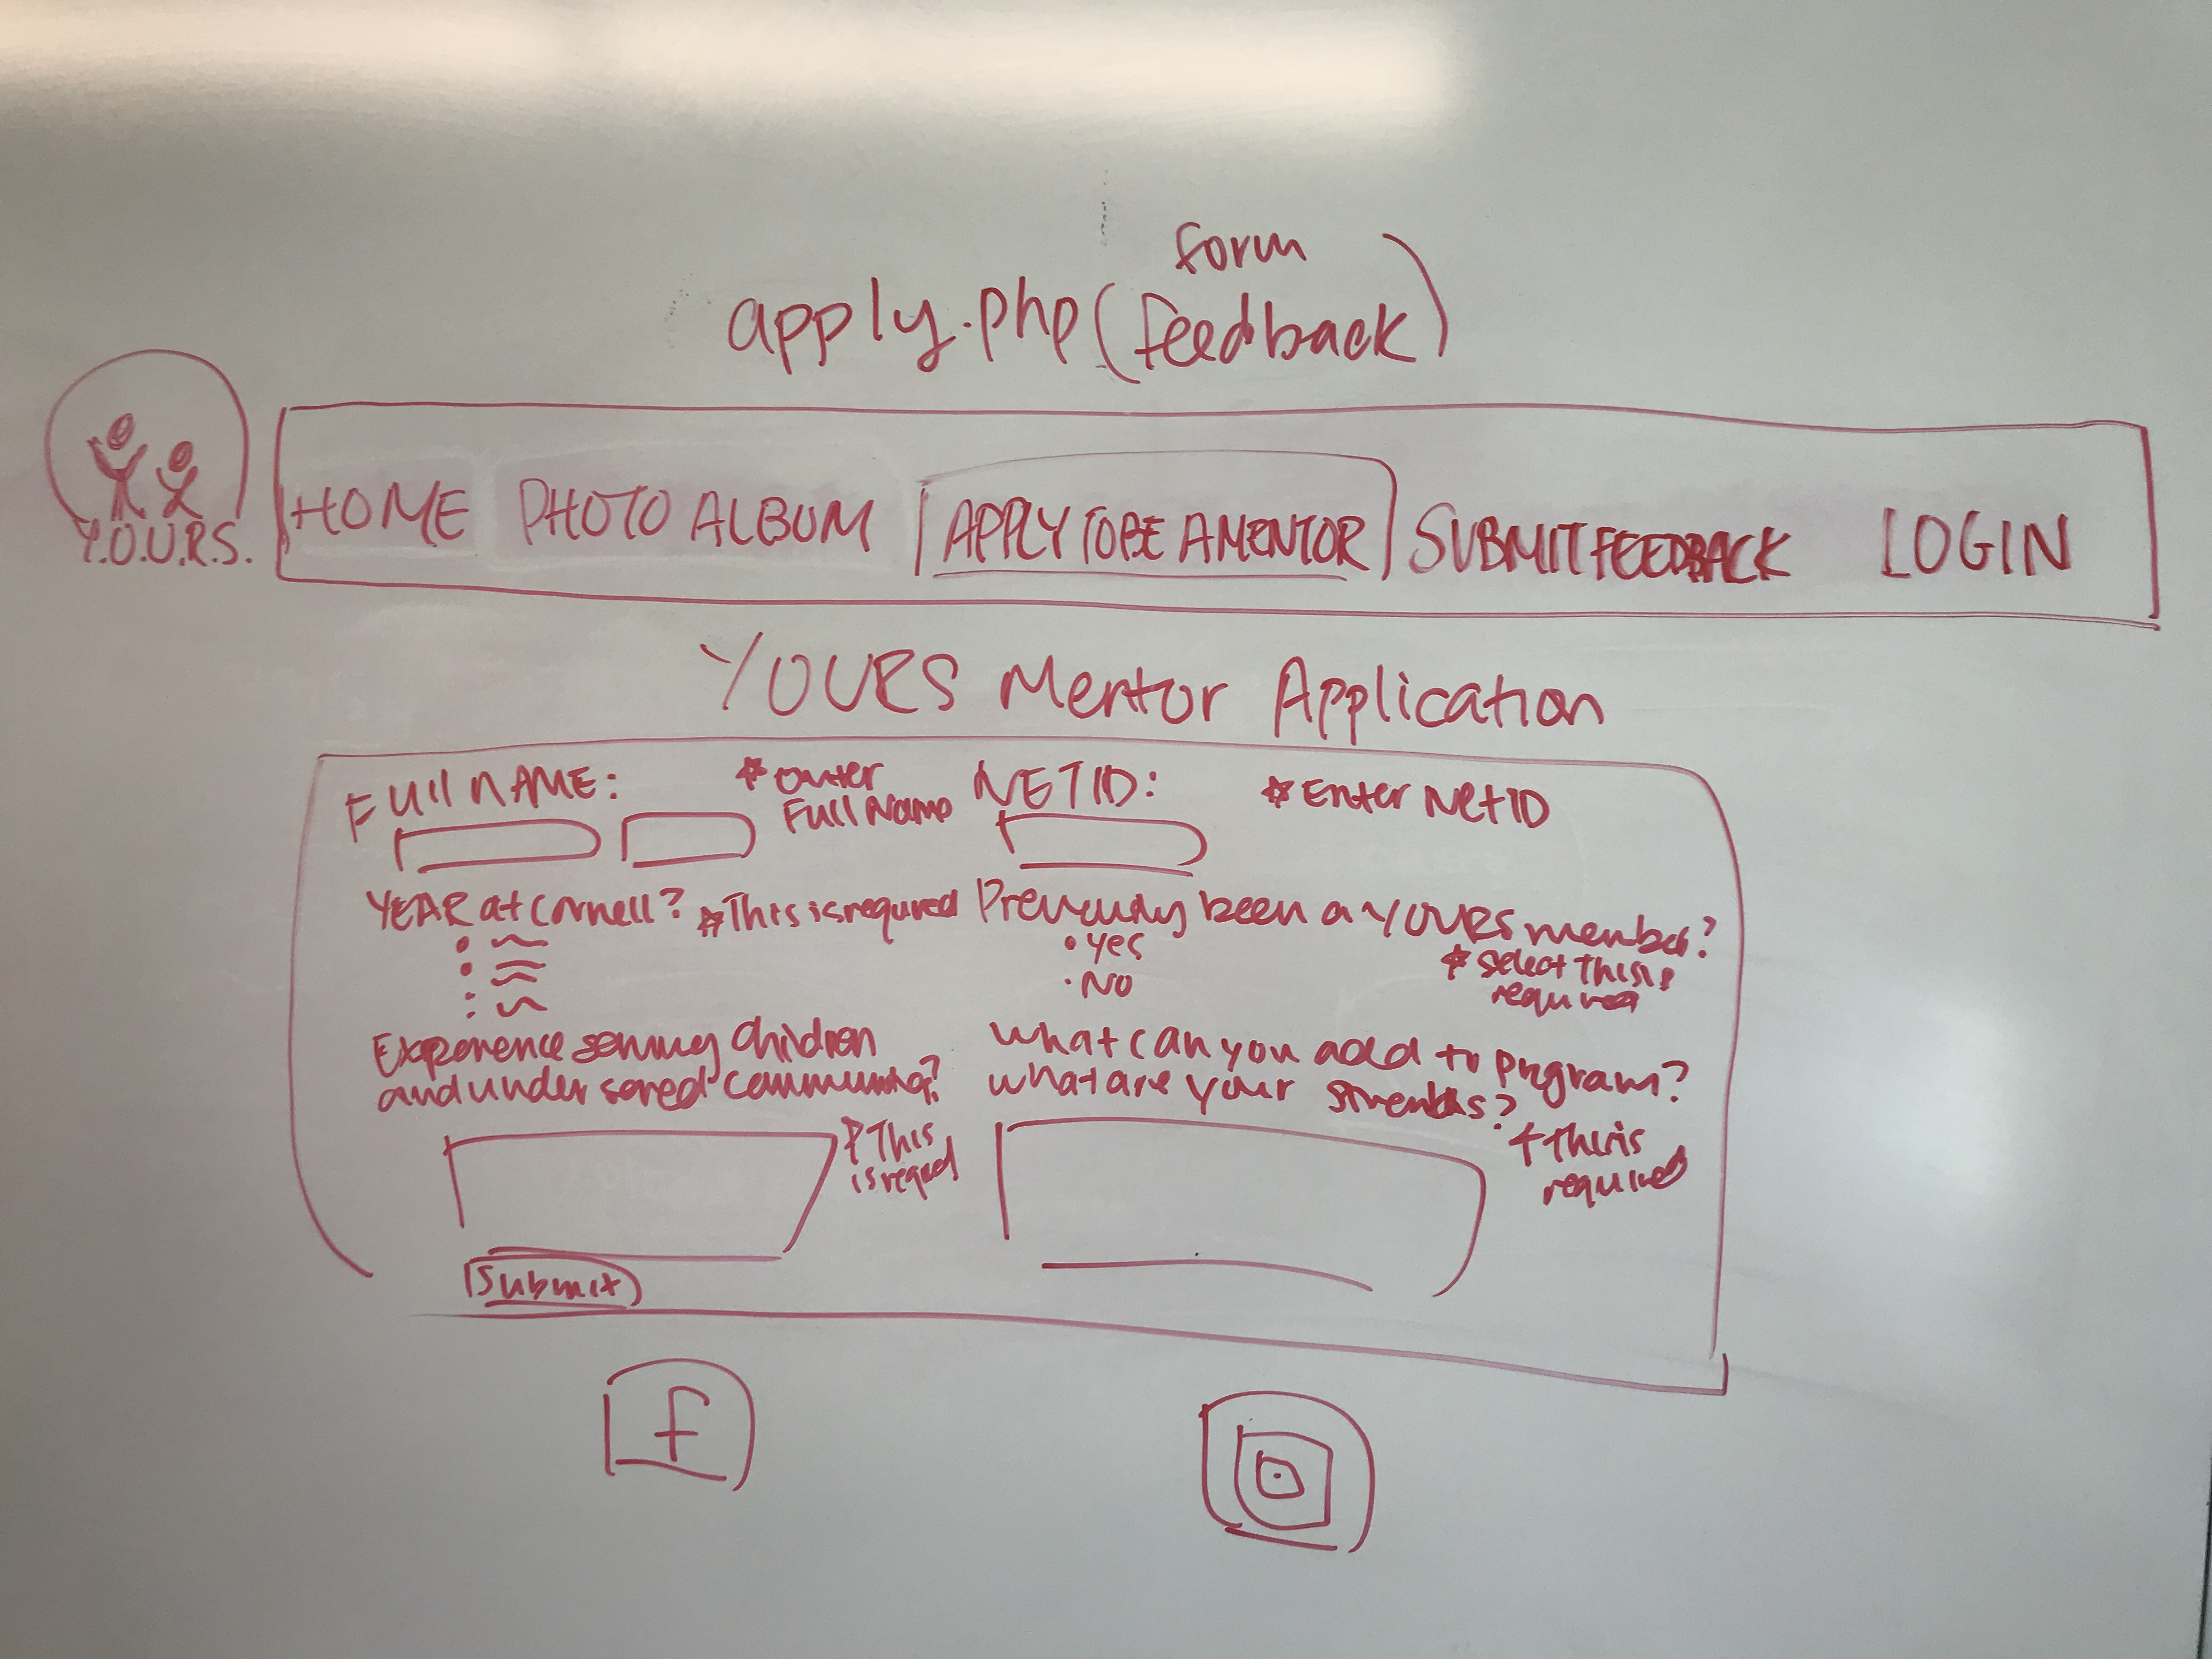 form
apply.php (feedback)
Y.O.U.R.S.
HOME PHOTO ALBUM APPLY TO BE A MENTOR SUBMIT FEEDBACK LOGIN
YOURS Mentor Application
FUll NAME: * Enter Full Name
NETID: * Enter NetID
YEAR at Cornell? * This is required
Previously been a YOURS member?
• Yes
• No
* select this is
required
Experience serving children
and under served communities?
* This
is required
What can you add to program?
what are your strengths?
* this is
required
Submit
f